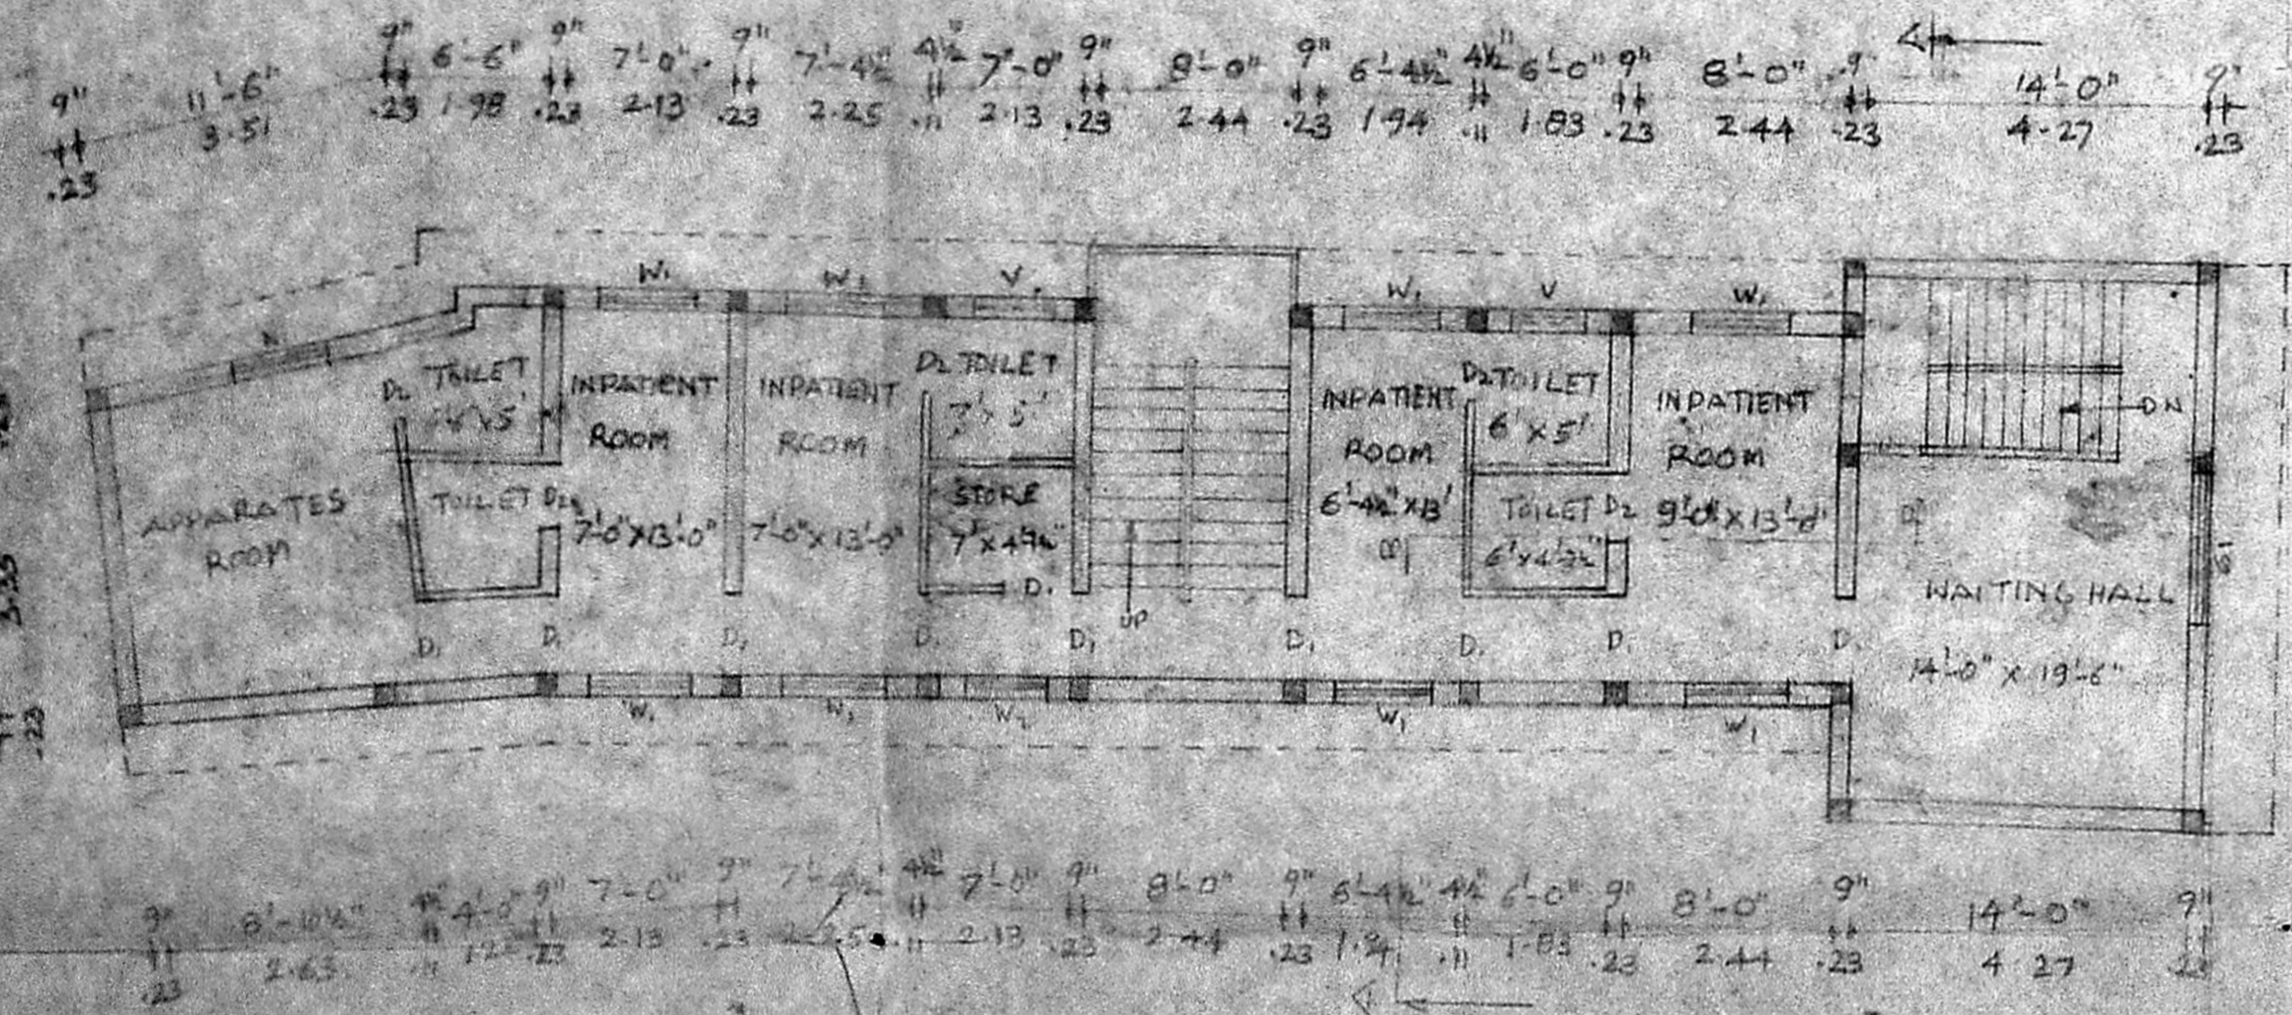 9" 11'-6" 9" 6'-6" 9" 7'-0" 9" 7'-4½" 4½" 7'-0" 9" 8'-0" 9" 6'-4½" 4½" 6'-0" 9" 8'-0" 9" 14'-0" 9"
.23 3.51 .23 1.98 .23 2.13 .23 2.25 .11 2.13 .23 2.44 .23 1.94 .11 1.83 .23 2.44 .23 4.27 .23
W1 V W1 V W1
D2 TOILET
INPATIENT
ROOM
7'-0"X13'-0"
INPATIENT
ROOM
7'-0"X13'-0"
D2 TOILET
7' X 5'
STORE
D1
UP
INPATIENT
ROOM
6'-4½"X13'
D2 TOILET
6' X 5'
TOILET D2
INPATIENT
ROOM
9'-0"X13'-0"
DN
APPARATES
ROOM
TOILET D2
WAITING HALL
14'-0" X 19'-6"
D1 D1 D1 D1 D1 D1 D1 D1 D1
W1 W1 W2 W1 W1
3.35
.23
9" 8'-10½" 4½" 4'-0" 9" 7'-0" 9" 7'-4½" 4½" 7'-0" 9" 8'-0" 9" 6'-4½" 4½" 6'-0" 9" 8'-0" 9" 14'-0" 9"
.23 2.63 .11 .23 2.13 .23 .11 2.13 .23 2.44 .23 1.94 .11 1.83 .23 2.44 .23 4.27 .23